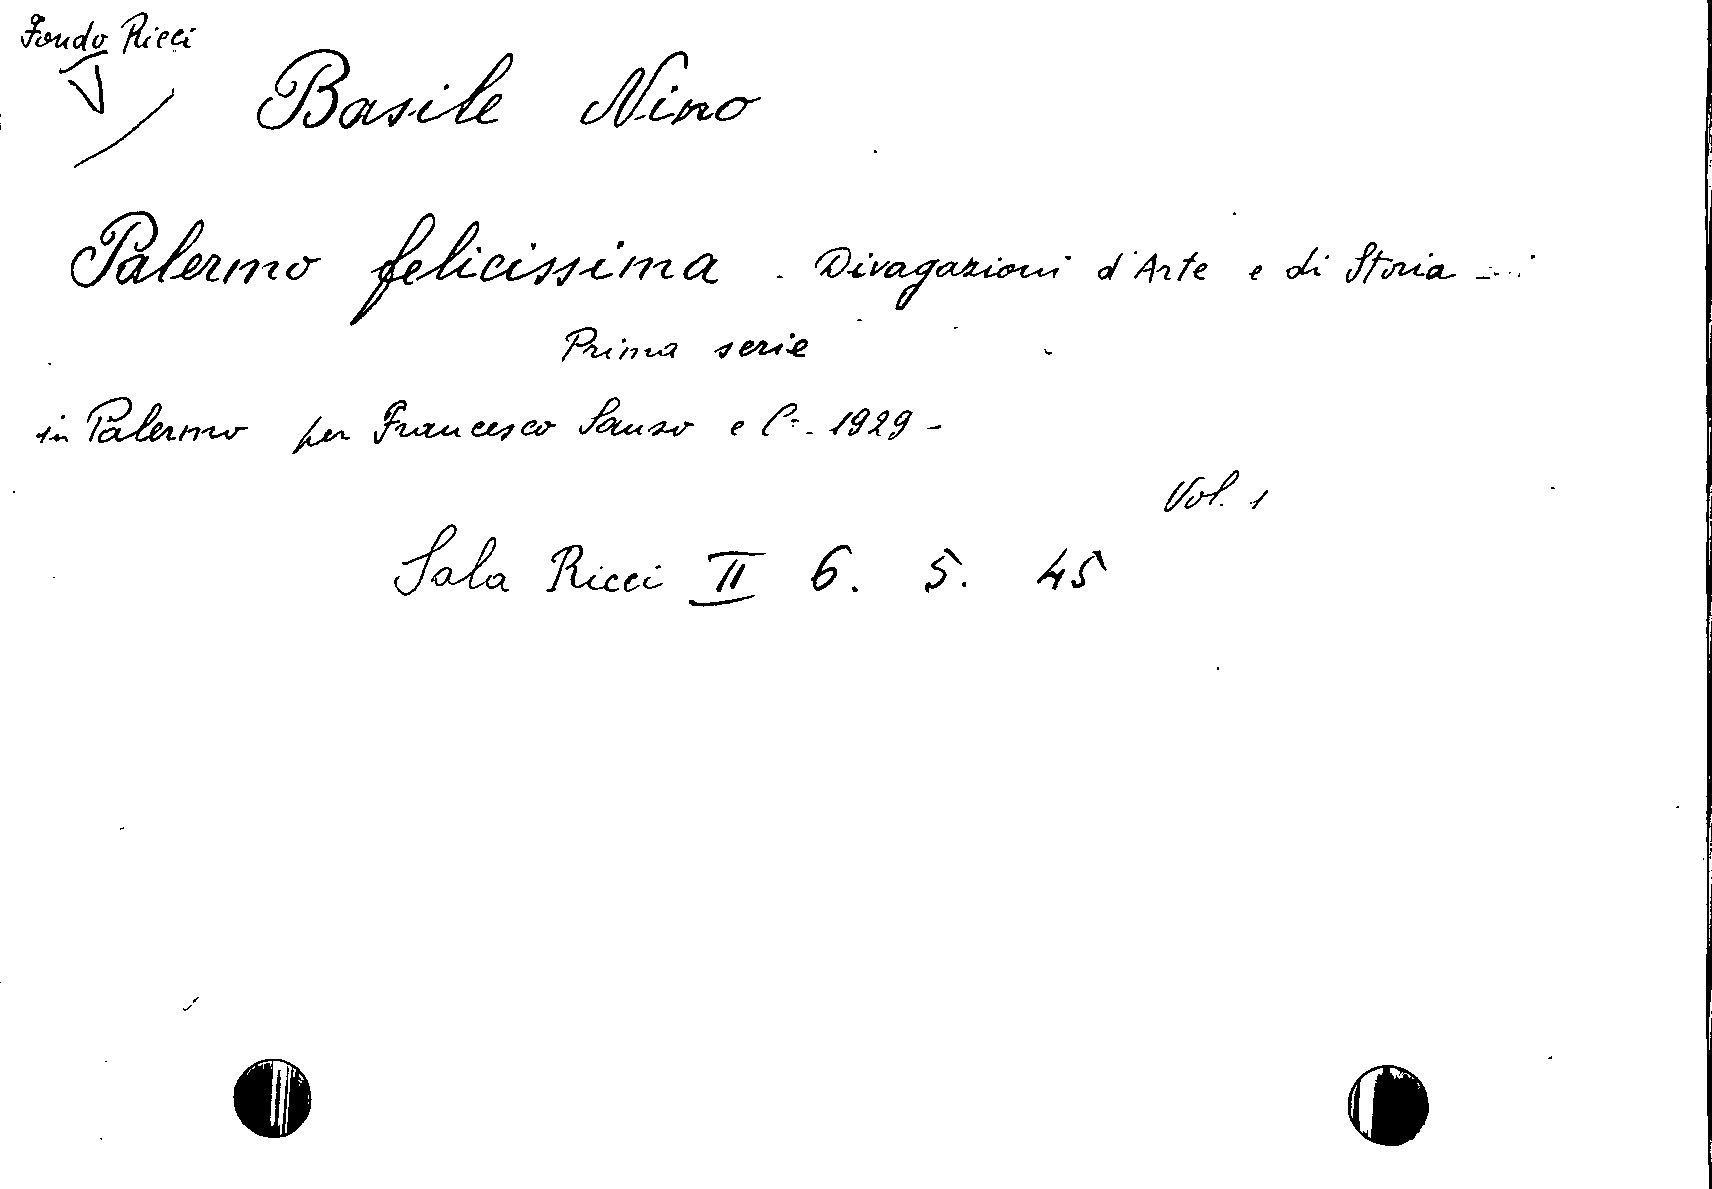 Fondo Ricci
Basile Nino
Palermo felicissima . Divagazioni d'Arte e di Storia -
Prima serie
in Palermo per Francesco Sanso e C. - 1929 -
Vol. 1
Sala Ricci II 6. 5. 45